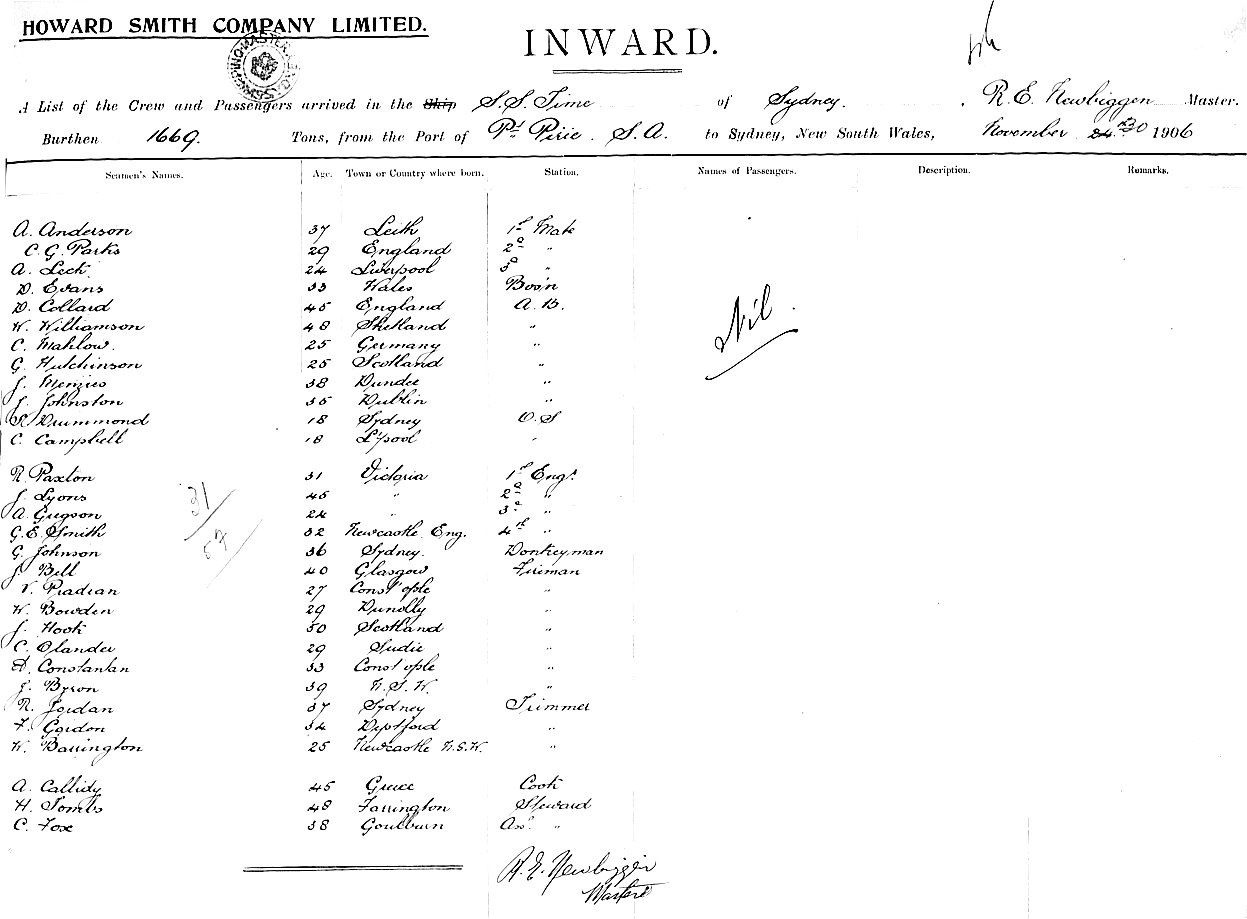 HOWARD SMITH COMPANY LIMITED.
INWARD.
A List of the Crew and Passengers arrived in the Ship S.S. Time of Sydney. R. E. Newbiggen Master.
Burthen 1669. Tons, from the Port of Pt Pirie. S.A. to Sydney, New South Wales, November 24 30 1906
Seamen's Names. Age. Town or Country where born. Station. Names of Passengers. Description. Remarks.
A. Anderson 37 Leith 1st Mate
C. G. Parks 29 England 2d "
A. Leck 24 Liverpool 3d "
D. Evans 33 Wales Bos'n
D. Collard 45 England A.B.
W. Williamson 48 Shetland "
C. Mahlow. 25 Germany "
G. Hutchinson 25 Scotland "
J. Menzies 38 Dundee "
J. Johnston 35 Dublin "
Drummond 18 Sydney O.S
C. Campbell 18 L'pool "
Nil.
R. Paxton 31 Victoria 1st Engr
J. Lyons 45 " 2d "
A. Gugson 24 " 3d "
G. E. Smith 32 Newcastle Eng. 4th "
G. Johnson 36 Sydney. Donkeyman
J. Bell 40 Glasgow Fireman
V. Pradian 27 Const'ople "
W. Bowden 29 Dunolly "
J. Hook 50 Scotland "
C. Olander 29 "
Constantan 33 Const'ople "
J. Byron 39 N.S.W. "
R. Jordan 37 Sydney Trimmer
F. Gordon 34 Deptford "
W. Barrington 25 Newcastle N.S.W. "
31
57
A. Callidy 45 Greece Cook
H. Tombs 48 Farrington Steward
C. Fox 38 Goulburn Ass. "
R. E. Newbiggin
Master